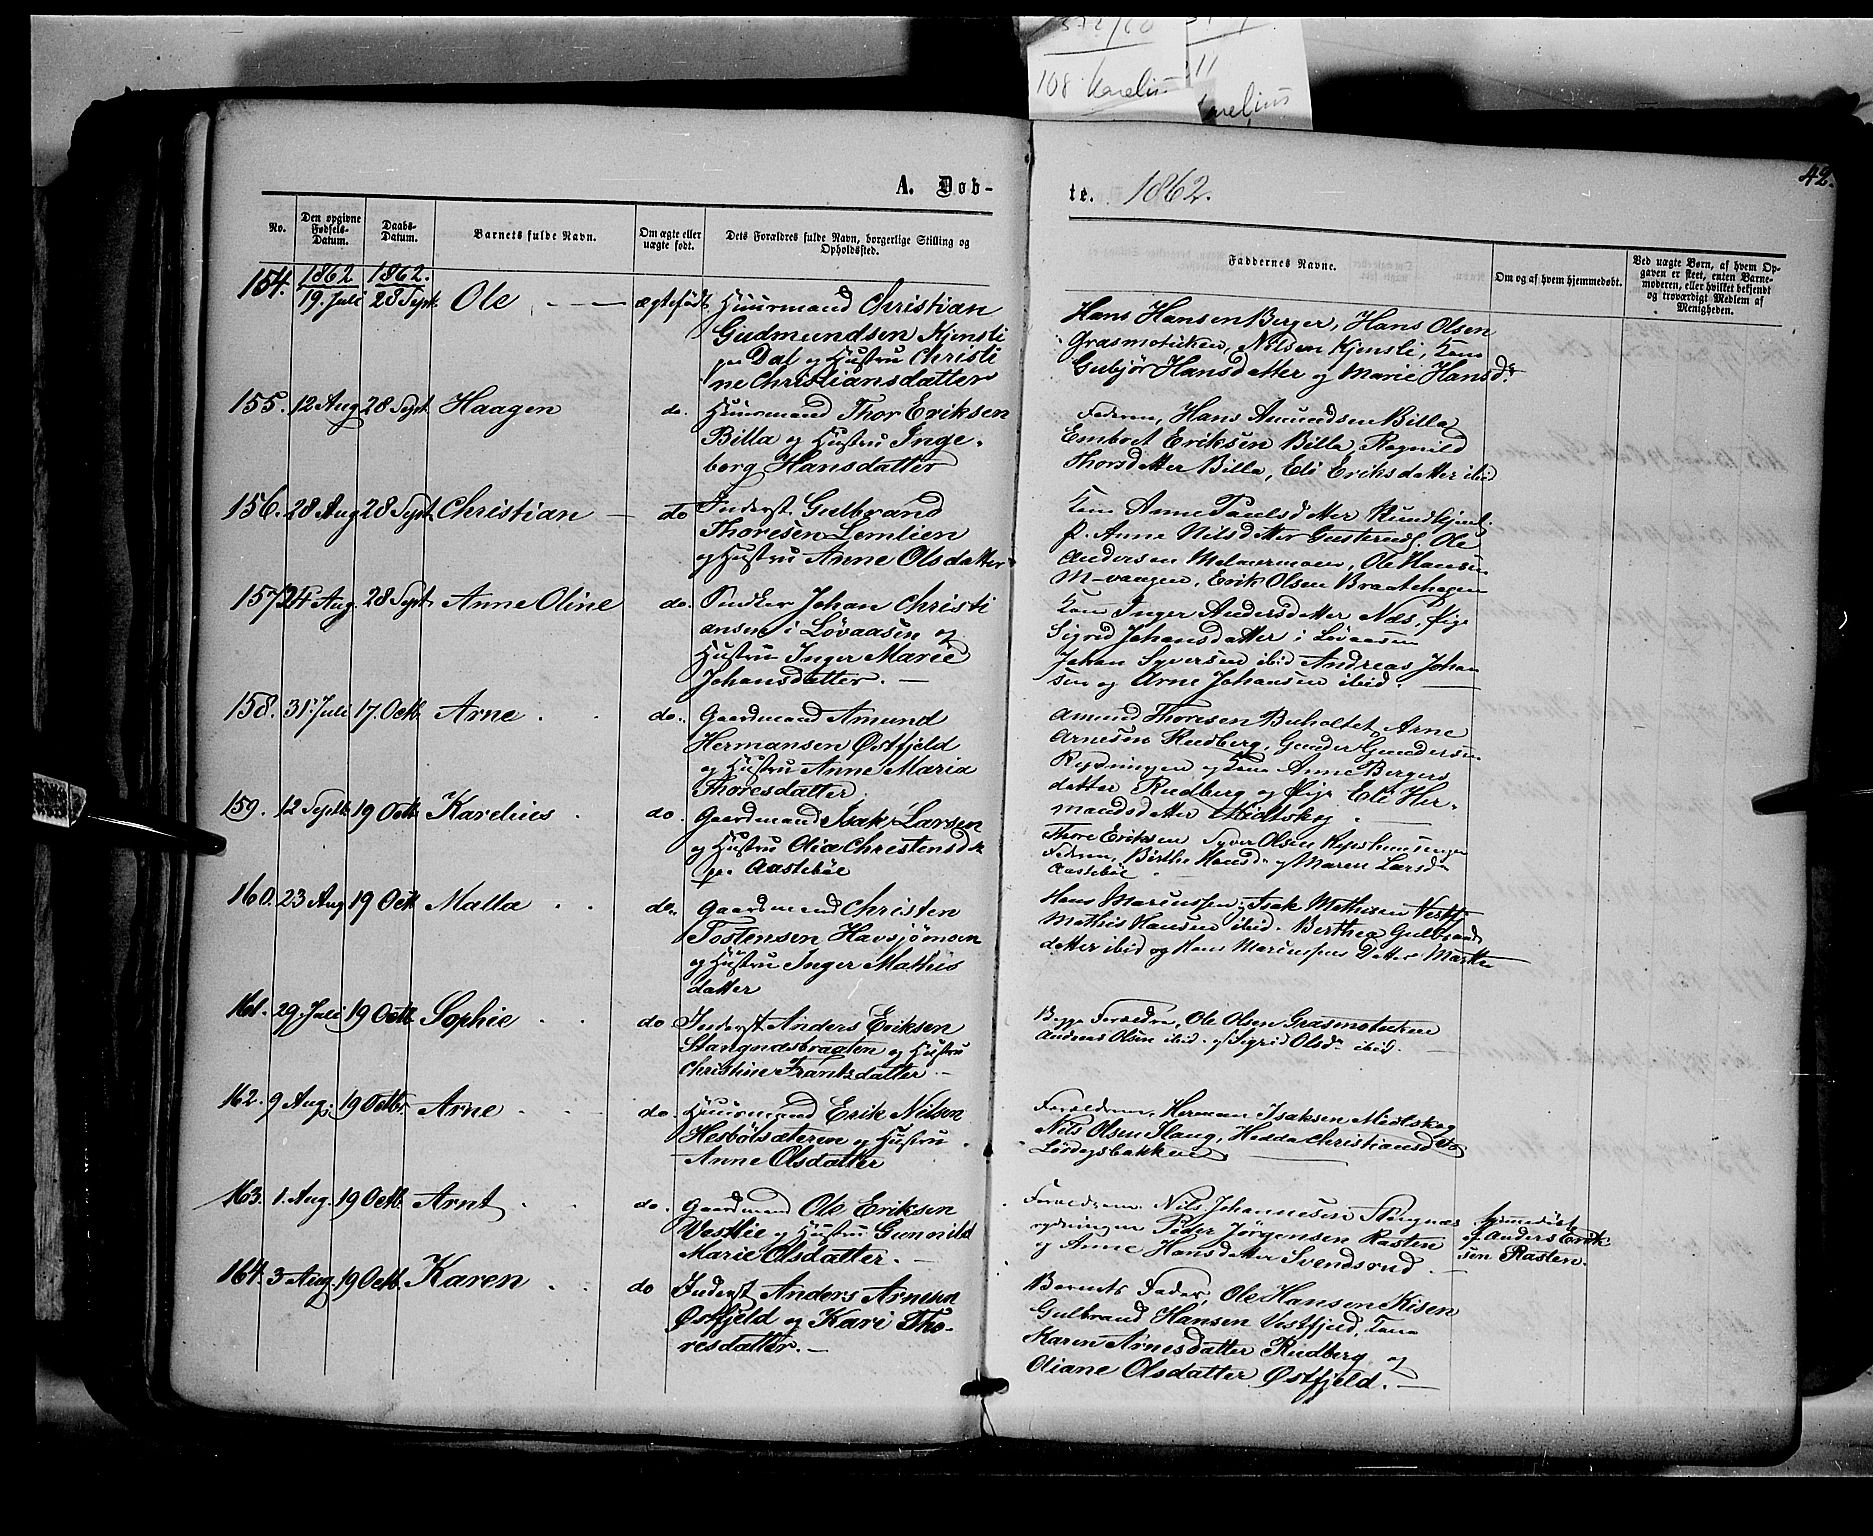 108 Karelius 211
Karelius
42.
A. Døb-
te. 1862.
No.
Den opgivne Fødsels-Datum.
Daabs-Datum.
Barnets fulde Navn.
Om ægte eller uægte født.
Dets Forældres fulde Navn, borgerlige Stilling og Opholdssted.
Faddernes Navne.
Om og af hvem hjemmedøbt.
Ved uægte Børn, af hvem Opgaven er skeet, enten Barnemoderen, eller hvilket bekjendt og troværdigt Medlem af Menigheden.
1862 1862.
154. 19. Juli 28 Sept. Ole ægtefødt Huusmand Christian
Gudmundsen Kjensli
pr Dal og Hustru Christi
ne Christiansdatter
Hans Hansen Berger, Hans Olsen
Grasmobakken, Nilsen Kjensli, Kone
Gubjør Hansdatter og Marie Hansd.
155. 12 Aug 28 Sept. Haagen do. Huusmand Thor Eriksen
Billa og Hustru Inge-
borg Hansdatter
Faderen, Hans Amundsen Billa
Embret Eriksen Billa, Ragnild
Thorsdatter Billa, Eli Eriksdatter ibid
156. 28 Aug 28 Sept. Christian do Inderst. Gulbrand
Thoresen Lemlien
og Hustru Anne Olsdatter
Kone Anne Paulsdatter
P. Anne Nilsdatter Ole
Andersen Melnermoen, Ole Hansen
M-vangen, Erik Olsen Braatehagen
157. 24 Aug. 28 Sept. Anne Oline do. Snedker Johan Christi
ansen i Løvaasen og
Hustru Inger Marie
Johansdatter. —
Kone Inger Andersdatter Næs, Pige
Sigrid Johansdatter i Løvaasen
Johan Syversen ibid Andreas Johan
sen og Arne Johansen ibid.
158. 31. Juli 17. Octb. Arne do. Gaardmand Amund
Hermansen Østfjeld
og Hustru Anne Maria
Thoresdatter.
Amund Thoresen Buholtet, Arne
Arnesen Rudberg, Gunder Gundersen
Rydningen og Kone Anne Bergers
datter Rudberg og Pige Eli Her-
mandsdatter Midtskog
159. 12 Septb. 19 Octb. Karelius do. Gaardmand Isak Larsen
og Hustru Olia Christensdtr
pr. Aastebøl
Thore Eriksen Syver Olsen
Faderen, Birthe Hansd. og Maren Larsd.
Aastebøl
160. 23 Aug 19 Octb Malla do. Gaardmand Christen
Tostensen Havsjømoen
og Hustru Inger Mathis
datter
Hans Mariussen, Isak Mathisen Vestfj
Mathis Hansen ibid. Berthea Gulbrands
datter ibid og Hans Mariussens Datter Marthe
161. 29. Juli 19 Octb. Sophie do Inderst Anders Eriksen
Stangnæsbraaten og Hustru
Christine Frantzdatter —
Begge Forældre, Ole Olsen Grasmobakken
Andreas Olsen ibid. og Sigrid Olsd. ibid.
162. 9 Aug. 19 Octbr. Arne do. Huusmand Erik Nilsen
Hesbølsæteren og Hustru
Anne Olsdatter
Forældrene, Herman Isaksen Midtskog
Nils Olsen Slaug, Hedda Christiansdtr
Lørdagsbakken
163. 1. Aug. 19 Octb. Arnt do. Gaardmand Ole Eriksen
Vestlie og Hustru Gunnild
Marie Olsdatter. —
Forældrene Nils Johannesen Stangnæs
rydningen Peder Jørgensen Rasten
og Anne Hansdatter Svendsrud.
hjemmedøbt
af Anders Erik
sen Rasten.
164. 3 Aug. 19 Octb. Karen do Inderst Anders Arnesen
Østfjeld og Kari Tho-
resdatter. —
Barnets Fader, Ole Hansen Kisen
Gulbrand Hansen Vestfjeld, Kone
Karen Arnesdatter Rudberg og
Oliane Olsdatter Østfjeld. —